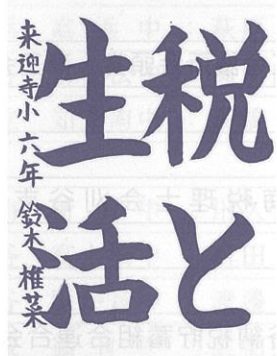 税と
生活
来迎寺小 六年 鈴木 椎菜